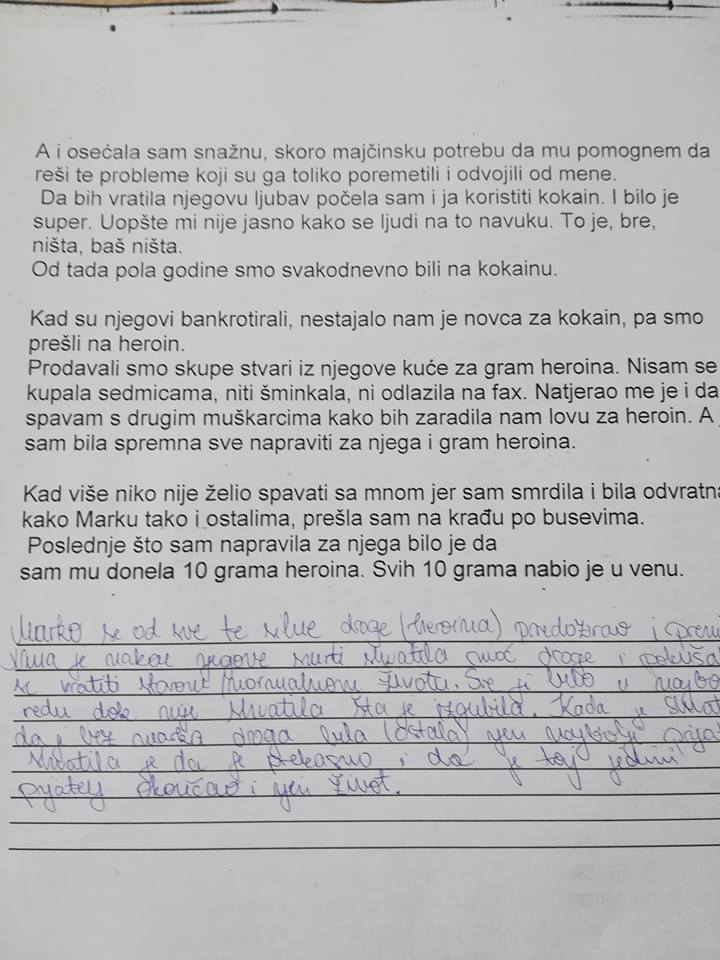 A i osećala sam snažnu, skoro majčinsku potrebu da mu pomognem da
reši te probleme koji su ga toliko poremetili i odvojili od mene.
Da bih vratila njegovu ljubav počela sam i ja koristiti kokain. I bilo je
super. Uopšte mi nije jasno kako se ljudi na to navuku. To je, bre,
ništa, baš ništa.
Od tada pola godine smo svakodnevno bili na kokainu.
Kad su njegovi bankrotirali, nestajalo nam je novca za kokain, pa smo
prešli na heroin.
Prodavali smo skupe stvari iz njegove kuće za gram heroina. Nisam se
kupala sedmicama, niti šminkala, ni odlazila na fax. Natjerao me je i da
spavam s drugim muškarcima kako bih zaradila nam lovu za heroin. A
sam bila spremna sve napraviti za njega i gram heroina.
Kad više niko nije želio spavati sa mnom jer sam smrdila i bila odvratna
kako Marku tako i ostalima, prešla sam na krađu po busevima.
Poslednje što sam napravila za njega bilo je da
sam mu donela 10 grama heroina. Svih 10 grama nabio je u venu.
Marko se od sve te silne droge (heroina) predozirao i
je nakon njegove smrti shvatila moć droge i
se vratiti starom (normalnom) životu. Sve je bilo u
redu dok nije shvatila šta je izgubila. Kada je
da je bez Marka droga bila (ostala) njen najbolji
shvatila je da je prekasno i da je taj jedini
prijatelj okončao i njen život.